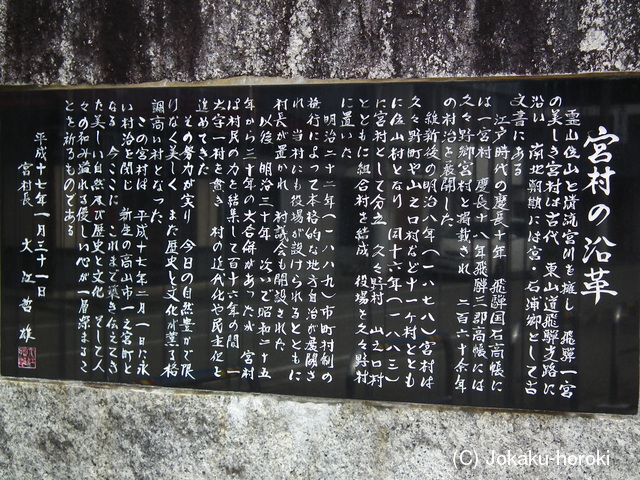 宮村の沿革
霊山位山と清流宮川を擁し 飛騨一宮
の美しき宮村は古代 東山道飛騨支路に
沿い 南北朝期には宮・石浦郷として古
文書にある
江戸時代の慶長十年 飛騨国石高帳に
は一宮村 慶長十八年飛騨三郡高帳には
久々野郷宮村と掲載され 二百六十余年
の村治を展開した
維新後の明治八年(一八七八)宮村は
久々野町や山之口村など十一ケ村ととも
に位山村となり 同十六年(一八八三)
に宮村として分立 久々野村 山之口村
とともに組合村を結成 役場を久々野村
に置いた
明治二十二年(一八八九)市町村制の
施行によって本格的な地方自治が展開さ
れ 当村にも役場が設けられるとともに
村長が置かれ 村議会も開設された
以後 明治三十年 次いで昭和二十五
年から三十年の大合併があったが 宮村
は村民の力を結集して百十六年の間 一
大字一村を貫き 村の近代化や民主化を
進めてきた
その努力が実り 今日の自然豊かで限
りなく美しく また歴史と文化が薫る格
調高い村となった
この宮村は 平成十七年二月一日に永
い村治を閉じ 新生の高山市一之宮町と
なる 今ここに これまで築き伝えてき
た美しい自然及び歴史と文化 そして人
々の和み溢れる優しい心が一層深まるこ
とを祈るものである
平成十七年一月三十一日
宮村長 大江哲雄
(C) Jokaku-horoki